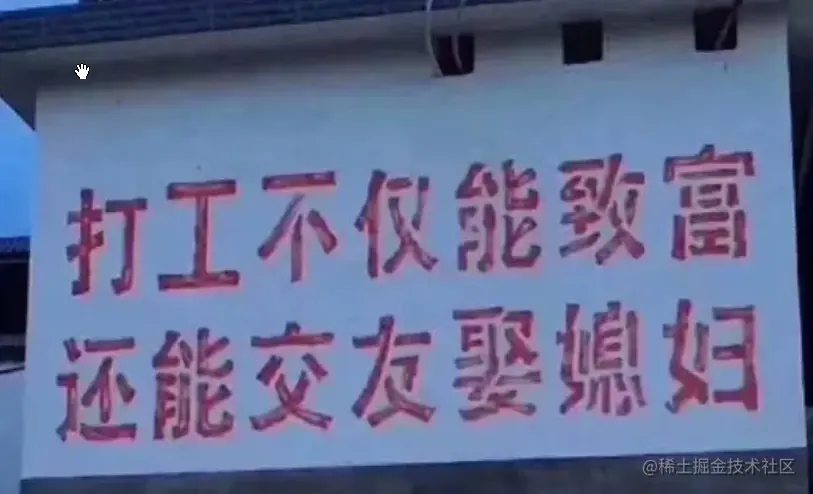 打工不仅能致富
还能交友娶媳妇
@稀土掘金技术社区